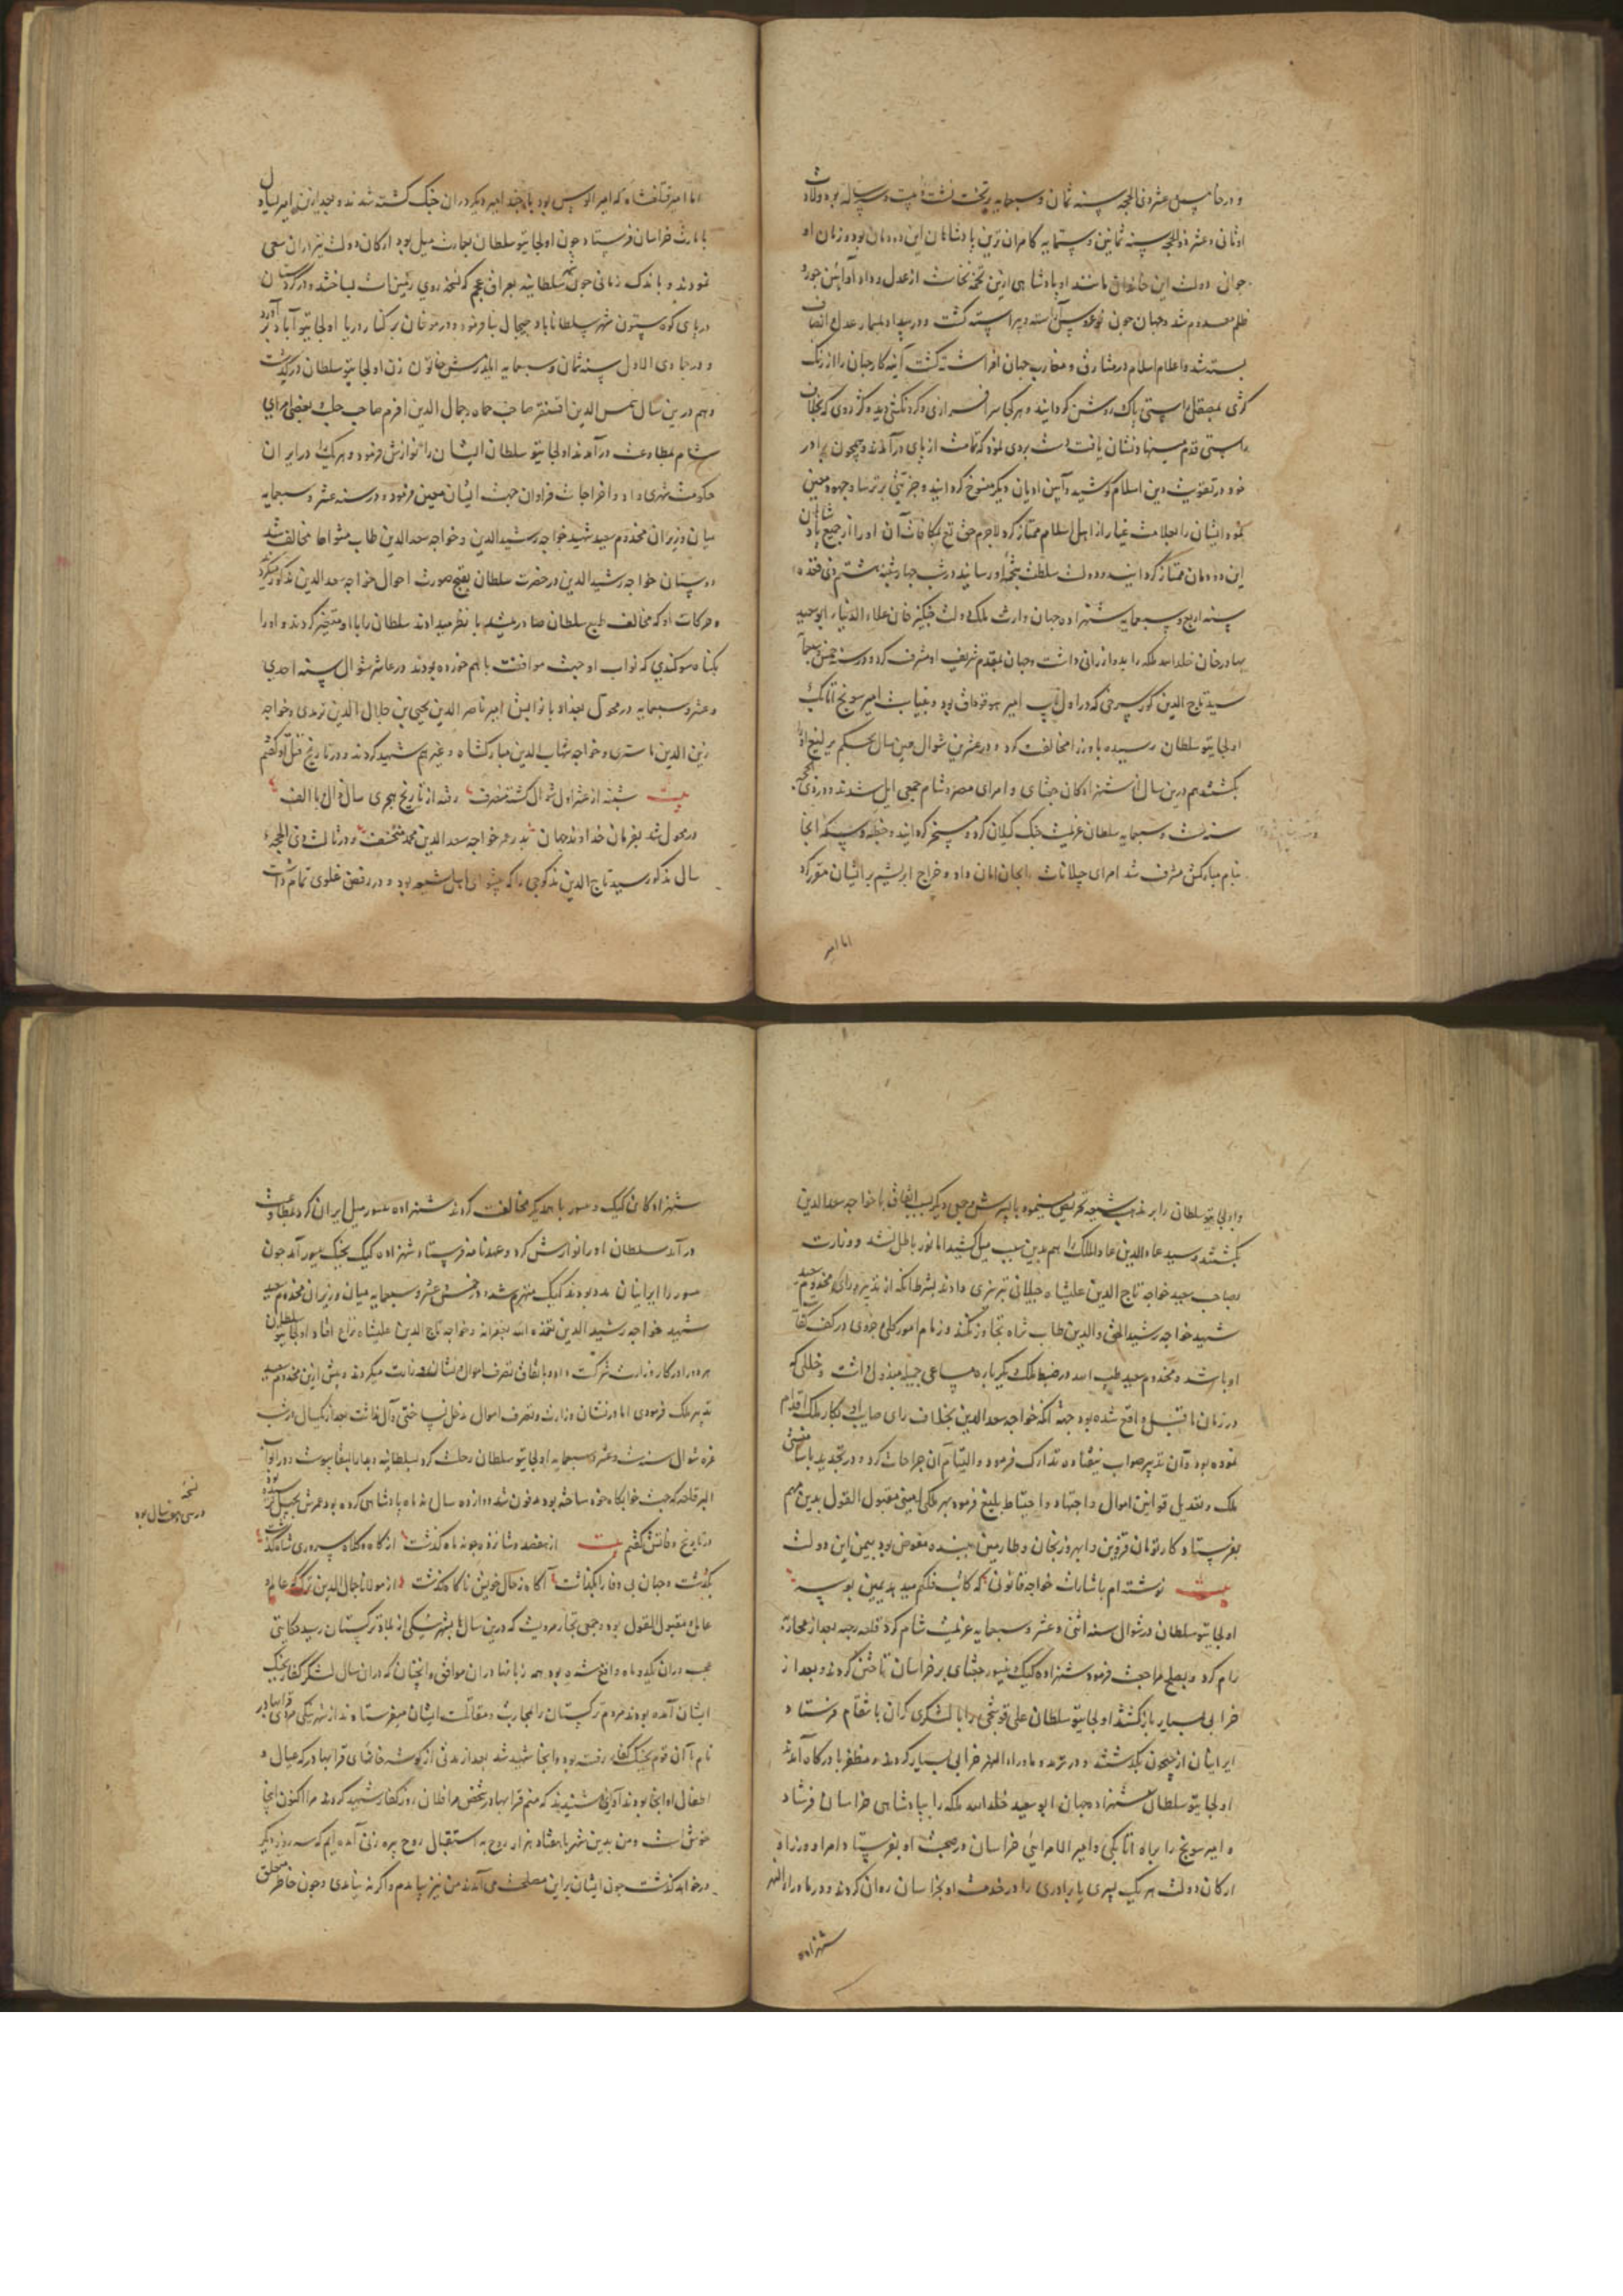 و در خامس عشر ذی الحجه سنه ثمان و سبعمایه بر تخت نشست بیست و سه ساله بود ولادت
او ثانی و عشر ذوالحجه سنه ثمانین و ستمایه کامران ترین پادشاهان این دودمان بود و زمان او
جوانی دولت این خاندان ماننده او پادشاهی ازین تخمه نخاست از عدل و داد او آیین جور و
ظلم معدوم شد و جهان چون عروس آراسته و پیراسته گشت و در بیداد بمسمار عدل و انصاف
بسته شد و اعلام اسلام در مشارق و مغارب جهان افراشته گشت آینه کار جهان را از زنک
کژی بمصقل راستی پاک روشن گردانید و هر کجا سرافرازی و گردنکشی دیده کژ روی که بخلاف
راستی قدم مینهاد نشان یافت دست بردی نمود که تمامت از پای درآمدند و همچون برادر
خود در تقویت دین اسلام کوشید و آیین ادیان دیگر منسوخ گردانید و جزیتی بر ترسا و جهود معین
نمود و ایشان را بعلامت غیار از اهل اسلام ممتاز کرد لاجرم حق تع بمکافات آن او را از جمیع پادشاهان
این دودمان ممتاز گردانید و دولت سلطنت بتخمه او رسانید در شب چهارشنبه هشتم ذی قعده
سنه اربع و سبعمایه شهزاده جهان وارث ملک و دولت چنگیز خان علاء الدنیا ابوسعید
بهادر خان خلد الله ملکه را بدو ارزانی داشت و جهان بمقدم شریف او مشرف کرد و در سنه خمس و سبعمایه
سید تاج الدین گور سرخی که در اول نایب امیر هورقوداق بود و بنیابت امیر سونج اتابک
اولجایتو سلطان رسیده با وزرا مخالفت کرد و در عشرین شوال همین سال بحکم یرلیغ او را
بکشتند هم درین سال از شهزادگان جغتای و امرای مصر و شام جمعی ایل شدند و در ذی الحجه
سنه ست و سبعمایه سلطان عزیمت جنگ گیلان کرد و مسخر گردانید و خطبه و سکه آنجا
بنام مبارکش مشرف شد امرای جیلانات را بجان امان داد و خراج ابریشم بر ایشان مقرر کرد
اما امیر
اما امیر قتلغشاه که امیر الوس بود با چند امیر دیگر در آن جنگ کشته شدند و بعد ازین امیر
بامارت خراسان فرستاد چون اولجایتو سلطان بعمارت میل بود ارکان دولت نیز در آن سعی
نمودند و باندک زمانی چون شهر سلطانیه بعراق عجم که نسخه روی زمین است بساختند و در کردستان
در پای کوه بیستون شهر سلطاناباد چمچال بنا فرمود و در موغان بر کنار دریا اولجایتو آباد
و در جمادی الاول سنه ثمان و سبعمایه ایلدرمش خاتون زن اولجایتو سلطان درگذشت
و هم درین سال شمس الدین اقسنقر صاحب حماه و جمال الدین افرم صاحب حلب بعضی امرای
شام بمطاوعت درآمدند اولجایتو سلطان ایشان را نوازش فرمود و هر یک را در ایران
حکومت شهری داد و اخراجات فراوان جهت ایشان معین فرمود و در سنه عشر و سبعمایه
میان وزیران مخدوم سعید شهید خواجه رشید الدین و خواجه سعد الدین طاب مثواهما مخالفت شد
دوستان خواجه رشید الدین در حضرت سلطان بقبح صورت احوال خواجه سعد الدین مذکور میکردند
و حرکات او که مخالف طبع سلطان صادر میشد با نظر میدادند سلطان را با او متغیر کردند و او را
بگناه سوگندی که نواب او جهت موافقت با هم خورده بودند در عاشر شوال سنه احدی
و عشر و سبعمایه در محول بغداد با نوابش امیر ناصر الدین یحیی بن جلال الدین ترمدی و خواجه
زین الدین ماستری و خواجه شهاب الدین مبارکشاه و غیرهم شهید کردند و در تاریخ قتل او گفتم
بیت شنبه از عشر اول شوال گشته منصرف رفته از تاریخ هجری سال ذال یا الف
در محول شد بفرمان خداوند جهان بدر خواجه سعد الدین محمد منخسف و در ثالث ذی الحجه
سال مذکور سید تاج الدین آوجی را که پیشوای اهل شیعه بود و در رفض غلوی تمام داشت
و اولجایتو سلطان را بر مذهب شیعه تحریض مینمود با پسرش و جمعی دیگر بسبب اتفاق با خواجه سعد الدین
بکشتند و سید عماد الدین علاء الملک را هم بدین سبب میل کشیدند اما نور باطل نشد و وزارت
بصاحب سعید خواجه تاج الدین علیشاه جیلانی تبریزی دادند بشرط آنکه از تدبیر و رای مخدوم سعید
شهید خواجه رشید الحق والدین طاب ثراه تجاوز نکند و زمام امور کلی و جزوی در کف کفایت
او باشد و مخدوم سعید طیب الله در ضبط ملک یکرباره مساعی جمیله مبذول داشت و خللی که
در زمان ماقبل واقع شده بود جهت آنکه خواجه سعد الدین بخلاف رای صایب او بکار ملک اقدام
نموده بود و آن تدبیر صواب نیفتاده تدارک فرمود و التیام آن جراحات کرد و در تجدید باسامشی
ملک و تعدیل قوانین اموال و اجتهاد و احتیاط بلیغ فرمود بهر ملکی امینی مقبول القول بدین مهم
بفرستاد و کار تومان قزوین و ابهر و زنجان و طارمین ببنده مفوض بود بیمن این دولت
بیت نوشته ام باشارات خواجه قانونی که کاتب فلکم میدهد یمین بوسه
اولجایتو سلطان در شوال سنه اثنی و عشر و سبعمایه عزیمت شام کرد قلعه رحبه بعد از محاربه
رام کرد و بصلح مراجعت فرمود شهزاده کپک و یسور جغتای بر خراسان تاختن کردند و بعد از
خرابی بسیار بازگشتند اولجایتو سلطان علی قوشچی را با لشکری گران بانتقام فرستاد
ایرانیان از جیحون بگذشتند و در ترمد و ماوراء النهر خرابی بسیار کردند و مظفر با درگاه آمدند
اولجایتو سلطان شهزاده جهان ابو سعید خلد الله ملکه را بپادشاهی خراسان فرستاد
و امیر سونج را براه اتابکی و امیر الامرایی خراسان در صحبت او بفرستاد و امرا و وزرا و
ارکان دولت هر یک پسری یا برادری را در خدمت او بخراسان روان کردند و در ماوراء النهر
شهزاده
شهزادگان کپک و یسور با همدیگر مخالفت کردند شهزاده یسور میل ایران کرد و بمطاوعت
درآمد سلطان او را نوازش کرد و عهدنامه فرستاد شهزاده کپک بجنگ یسور آمد چون
یسور را ایرانیان مدد بودند کپک منهزم شد و در خمس عشر و سبعمایه میان وزیران مخدوم سعید
شهید خواجه رشید الدین تغمده الله بغفرانه و خواجه تاج الدین علیشاه نزاع افتاد اولجایتو سلطان
هر دو را در کار وزارت شرکت داد و باتفاق تصرف اموال نشان میکردند و پیش ازین مخدوم سعید
تدبیر ملک فرمودی اما در نشان وزارت و تصرف اموال مدخل نساختی و آل نداشت بعد از یکسال در شب
غره شوال سنه ست و عشر و سبعمایه اولجایتو سلطان رحلت کرد بسلطانیه و بدار البقا پیوست و در ابواب
البر قلعه که جهت خوابگاه خود ساخته بود مدفون شد دوازده سال نه ماه پادشاهی کرده بود عمرش بچهل نرسیده بود
در تاریخ وفاتش گفتم بیت از هفصد و شانزده چو نه ماه گذشت از گاه و کلاه سروری شاه گذشت
بگذشت و جهان بی وفا را بگذاشت آگاه ز حال خویش ناگاه گذشت و از مولانا جمال الدین ترکه عالم و
عامل و مقبول القول بود و جمعی تجار مرویست که درین سال بشهر نیکی از بلاد ترکستان رسید حکایتی
عجب در آن یکدو ماه واقع شده بود همه زبانها در آن موافق و آنچنان که در آن سال لشکر کفار بجنگ
ایشان آمده بودند مردم ترکستان را بمحاربت و مقاتلت ایشان میفرستادند از شهر نیکی مردی قرابهادر
نام با آن قوم بجنگ کفار رفته بود و آنجا شهید شد بعد از مدتی از گوشه خانهای قرابهادر که عیال و
اطفال او آنجا بودند آوازی شنیدند که منم قرابهادر شخص مرا فلان روز کفار شهید کردند مرا اکنون آنجا
خوش است و من بدین شهر با هفتاد هزار روح به استقبال روح پیره زنی آمده ایم که سه روز دیگر
درخواهد گذشت چون ایشان برای این مصلحت می آمدند من نیز بیامدم و اگر نه نیامدی و چون خاطر متعلق
نسخه
در سی و هفت سال بود